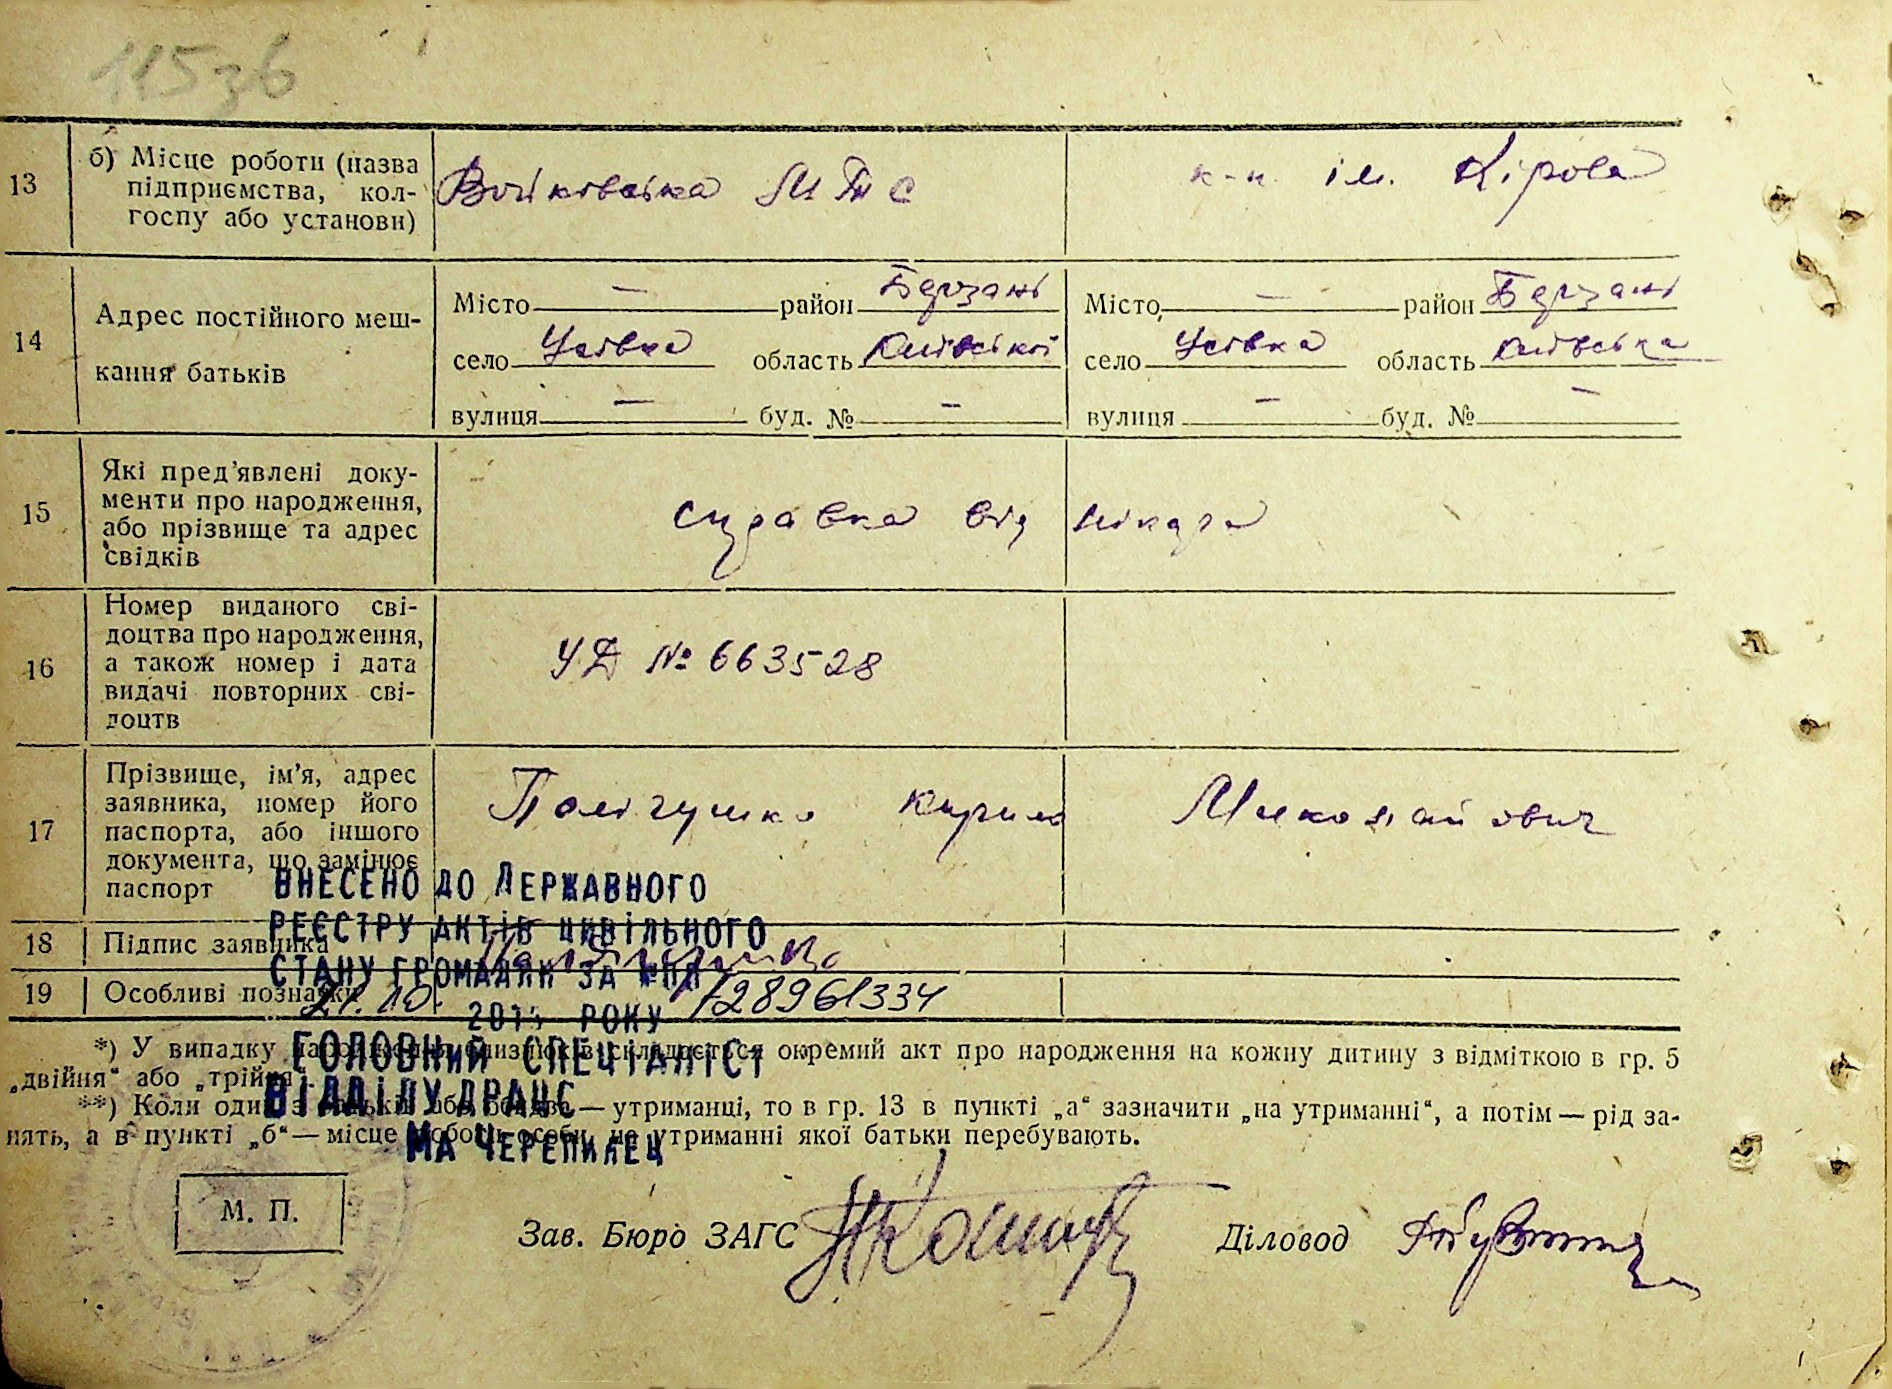 115зв
13
б) Місце роботи (назва
підприємства, кол-
госпу або установи)
Войковська МТС
к-п ім. Кірова
14
Адрес постійного меш-
кання батьків
Місто — район Берзані
село Усівка область Київської
вулиця — буд. № —
Місто — район Берзані
село Усівка область Київська
вулиця — буд. № —
15
Які пред'явлені доку-
менти про народження,
або прізвище та адрес
свідків
справка від лікаря
16
Номер виданого сві-
доцтва про народження,
а також номер і дата
видачі повторних сві-
доцтв
УД № 663528
17
Прізвище, ім'я, адрес
заявника, номер його
паспорта, або іншого
документа, що замінює
паспорт
Полігушко Кирило Миколайович
ВНЕСЕНО ДО ДЕРЖАВНОГО
РЕЄСТРУ АКТІВ ЦИВІЛЬНОГО
18 Підпис заявника
СТАНУ ГРОМАДЯН ЗА №
19 Особливі позначки
21.10. 128961334
РОКУ
ГОЛОВНИЙ СПЕЦІАЛІСТ
ВІДДІЛУ ДРАЦС
*) У випадку складається окремий акт про народження на кожну дитину з відміткою в гр. 5
„двійня“ або „трійня“.
**) Коли один — утриманці, то в гр. 13 в пункті „а“ зазначити „на утриманні“, а потім — рід за-
нять, а в пункті „б“ — місце роботи особи, на утриманні якої батьки перебувають.
М. П.
Зав. Бюро ЗАГС
Діловод